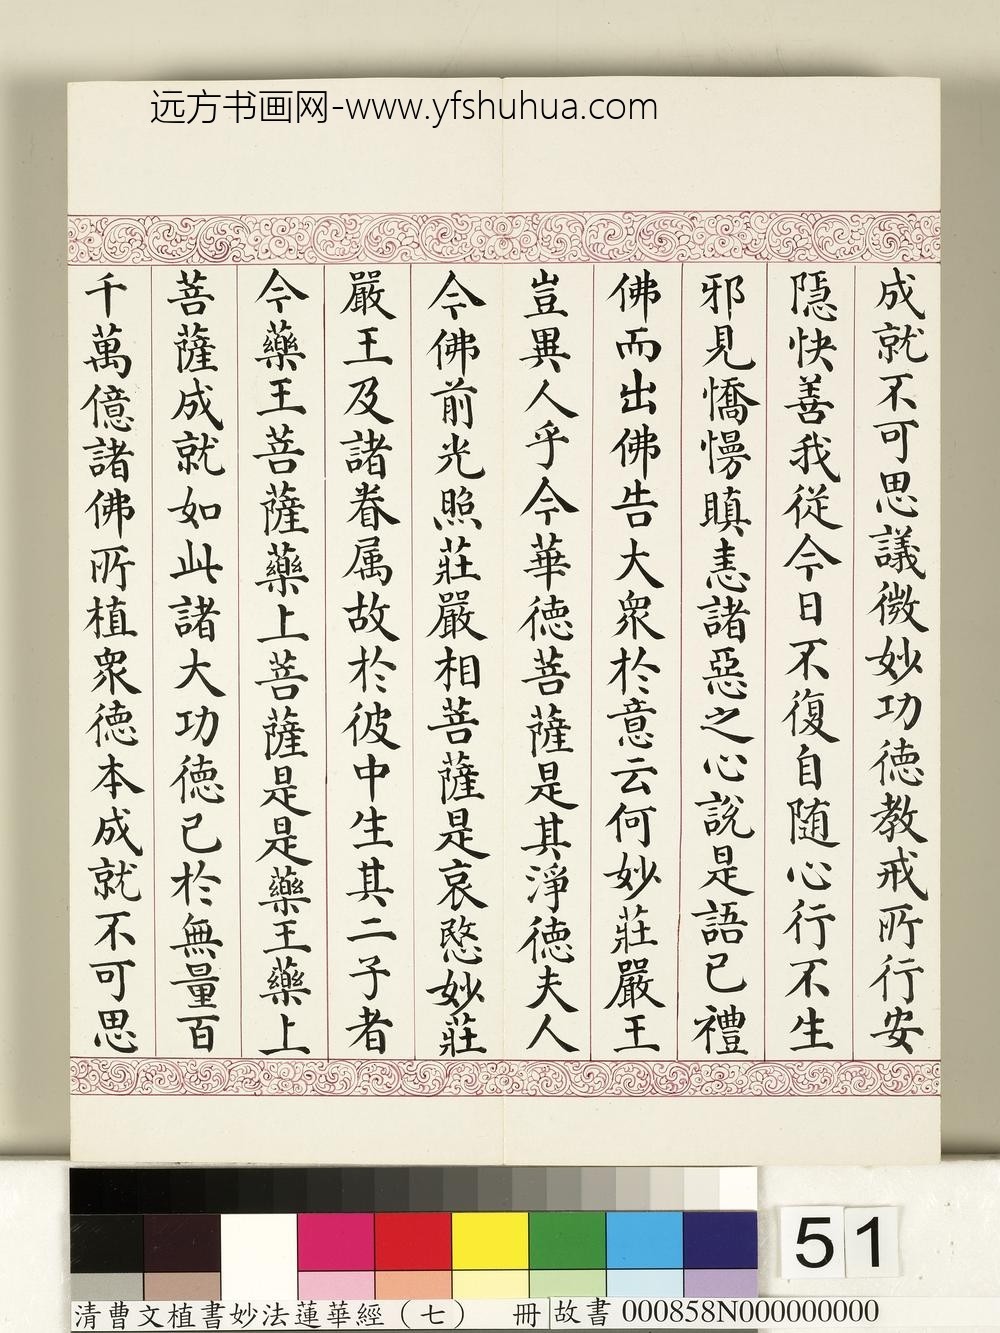 远方书画网-www.yfshuhua.com
成就不可思議微妙功德教戒所行安
隱快善我從今日不復自隨心行不生
邪見憍慢瞋恚諸惡之心說是語已禮
佛而出佛告大眾於意云何妙莊嚴王
豈異人乎今華德菩薩是其淨德夫人
今佛前光照莊嚴相菩薩是哀愍妙莊
嚴王及諸眷属故於彼中生其二子者
今藥王菩薩藥上菩薩是是藥王藥上
菩薩成就如此諸大功德已於無量百
千萬億諸佛所植眾德本成就不可思
51
清曹文植書妙法蓮華經（七） 冊 故書 000858N000000000